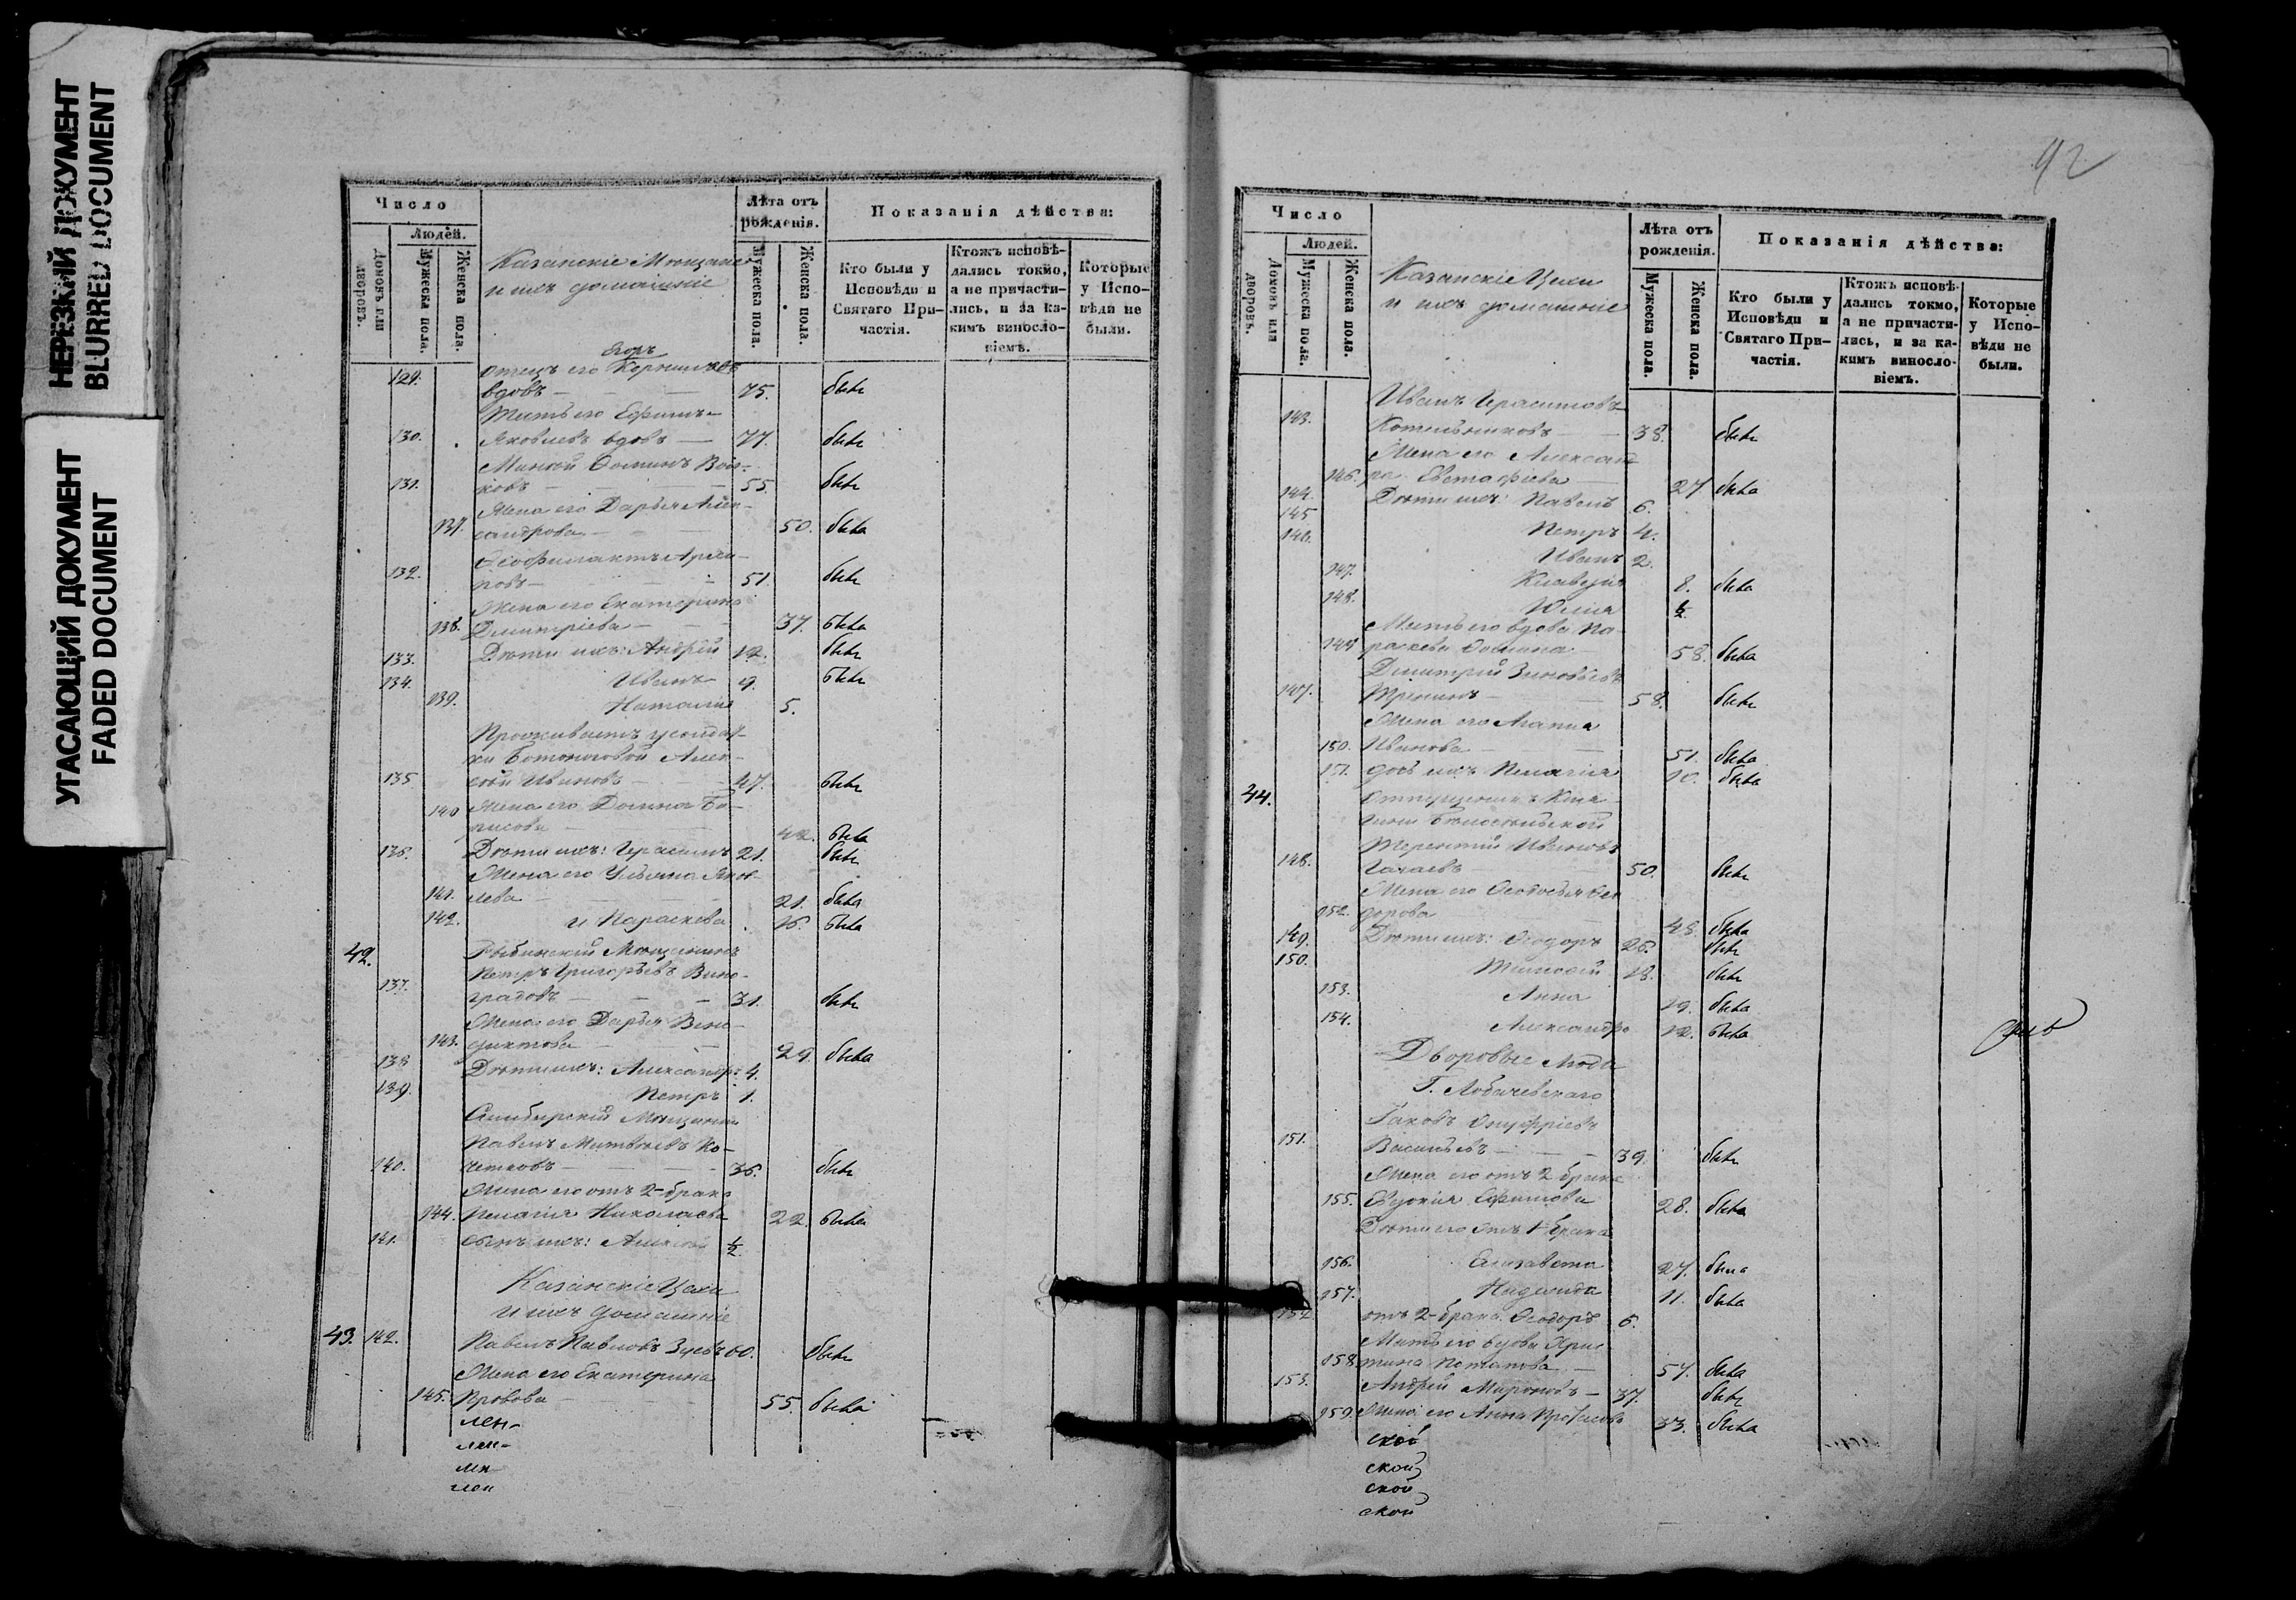 НЕРЕЗКИЙ ДОКУМЕНТ
BLURRED DOCUMENT
УГАСАЮЩИЙ ДОКУМЕНТ
FADED DOCUMENT
Число
Людей.
Домовъ или дворовъ.
Мужеска пола.
Женска пола.
Казанскіе Мещане
и ихъ домашніе
Лѣта отъ рожденія.
Мужеска пола.
Женска пола.
Показанія дѣйства:
Кто были у Исповѣди и Святаго Причастія.
Ктожъ исповѣдались токмо, а не причастились, и за какимъ винословіемъ.
Которые у Исповѣди не были.
Егоръ
129. отецъ его Корниловъ
вдовъ — 75. былъ
Тесть его Ефимъ
130. Яковлевъ вдовъ — 77. былъ
131. ковъ — 55. былъ
Жена его Дарья Алек-
137. сандрова — 50. была
132. ровъ — 51. былъ
Жена его Екатерина
138. Дмитріева — 37. была
133. Дѣти ихъ: Андрей 12. былъ
134. Иванъ 9. былъ
139. Наталія 5.
Проживаетъ у солдат-
ки Алек-
135 сѣй Ивановъ — 47. былъ
140 Жена его Домна Бо-
рисова — 42. была
136. Дѣти ихъ: Герасимъ 21. былъ
Жена его Ульяна Яков-
141. лева — 21. была
142. и Параскева 16. была
42. Рыбинскій Мещанинъ
Петръ Григорьевъ Вино-
137. градовъ — 31. былъ
Жена его Дарья Вене-
143. диктова — 29. была
138 Дѣти ихъ: Александръ 4.
139. Петръ 1.
Симбирскій Мещанинъ
Павелъ Матвѣевъ Ко-
140. четковъ — 36. былъ
Жена его отъ 2 брака
144. Пелагія Николаева 22. была
141. сынъ ихъ: Алексѣй ½
Казанскіе Цехи
и ихъ домашніе
43. 142. Павелъ Павловъ Зуевъ 60. былъ
Жена его Екатерина
145. Провова — 55. была
лен-
лен-
лен
лен
92
Число
Людей.
Домовъ или дворовъ.
Мужеска пола.
Женска пола.
Казанскіе Цехи
и ихъ домашніе
Лѣта отъ рожденія.
Мужеска пола.
Женска пола.
Показанія дѣйства:
Кто были у Исповѣди и Святаго Причастія.
Ктожъ исповѣдались токмо, а не причастились, и за какимъ винословіемъ.
Которые у Исповѣди не были.
Иванъ Герасимовъ
143. Котельниковъ — 38. былъ
Жена его Александ-
146. ра Евстафіева — 27. была
144. Дѣти ихъ: Павелъ 6.
145 Петръ 4.
146. Иванъ 2.
147. Клавдія 8. была
148. Юлія ½
Мать его вдова Па-
149 раскева Фомина — 58. была
Дмитрій Зиновьевъ
147. — 58. былъ
Жена его Агапія
150. Иванова — 51. была
151. дочь ихъ Пелагія 10. была
44. Отпущенникъ Кня-
гини Бѣлосельской
Терентій Ивановъ
148. — 50. былъ
Жена его Ѳеодосья Ѳео-
152. дорова — 48. была
149. Дѣти ихъ: Ѳеодоръ 26. былъ
150. Тимоѳей 18. былъ
153. Анна 19. была
154. Александра 12. была
Дворовые люди
Г. Лобачевскаго
Іаковъ Онуфріевъ
151. Васильевъ — 39. былъ
Жена его отъ 2 брака
155. Евдокія Ефимова 28. была
Дѣти его отъ 1 брака
156. Елизавета 27. была
157. Надежда 11. была
152 отъ 2 брака Ѳеодоръ 6.
Мать его вдова Хрис-
158. тина Потапова — 57. была
153. Андрей Мироновъ — 37. былъ
159. Жена его Анна 33. была
ской
ской
ской
ской